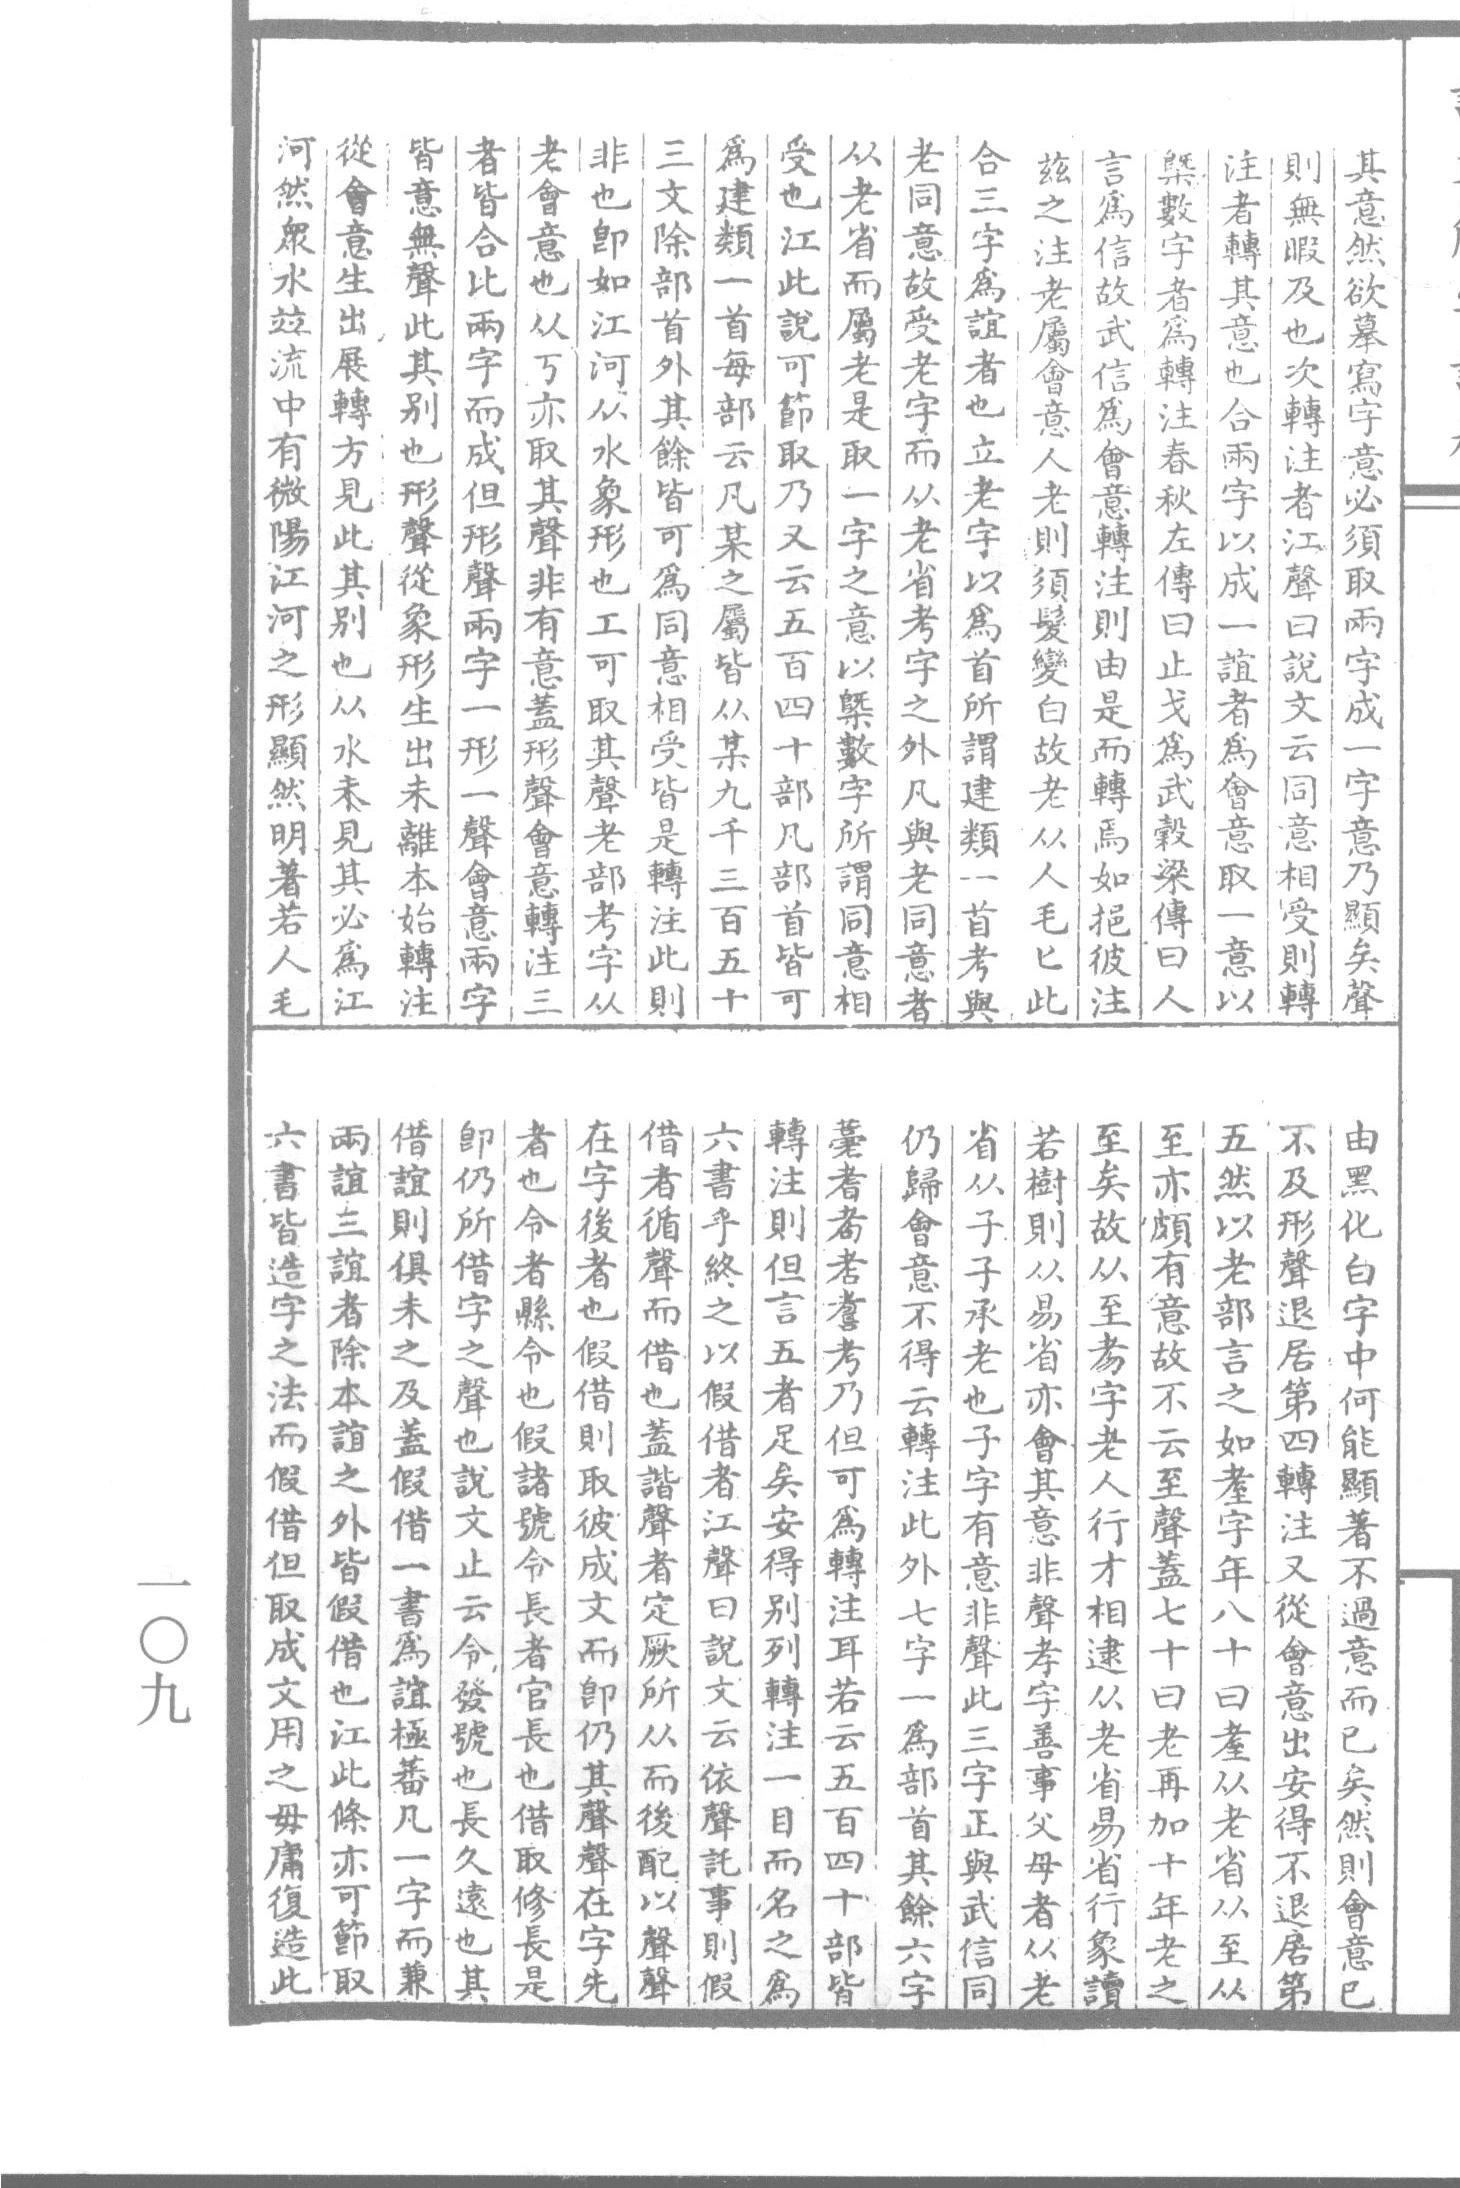 其意然欲摹寫字意必須取兩字成一字意乃顯矣聲
則無暇及也次轉注者江聲曰說文云同意相受則轉
注者轉其意也合兩字以成一誼者為會意取一意以
槩數字者為轉注春秋左傳曰止戈為武穀梁傳曰人
言為信故武信為會意轉注則由是而轉焉如挹彼注
茲之注老屬會意人老則須髮變白故老从人毛匕此
合三字為誼者也立老字以為首所謂建類一首考與
老同意故受老字而从老省考字之外凡與老同意者
从老省而屬老是取一字之意以槩數字所謂同意相
受也江此說可節取乃又云五百四十部凡部首皆可
為建類一首每部云凡某之屬皆从某九千三百五十
三文除部首外其餘皆可為同意相受皆是轉注此則
非也卽如江河从水象形也工可取其聲老部考字从
老會意也从丂亦取其聲非有意蓋形聲會意轉注三
者皆合比兩字而成但形聲兩字一形一聲會意兩字
皆意無聲此其别也形聲從象形生出未離本始轉注
從會意生出展轉方見此其别也从水未見其必為江
河然眾水竝流中有微陽江河之形顯然明著若人毛
由黑化白字中何能顯著不過意而已矣然則會意已
不及形聲退居第四轉注又從會意出安得不退居第
五然以老部言之如耊字年八十曰耊从老省从至从
至亦頗有意故不云至聲蓋七十曰老再加十年老之
至矣故从至耉字老人行才相逮从老省易省行象讀
若樹則从易省亦會其意非聲孝字善事父母者从老
省从子子承老也子字有意非聲此三字正與武信同
仍歸會意不得云轉注此外七字一為部首其餘六字
薹耆耇耉耋考乃但可為轉注耳若云五百四十部皆
轉注則但言五者足矣安得别列轉注一目而名之為
六書乎終之以假借者江聲曰說文云依聲託事則假
借者循聲而借也蓋諧聲者定厥所从而後配以聲聲
在字後者也假借則取彼成文而卽仍其聲聲在字先
者也令者縣令也假諸號令長者官長也借取修長是
卽仍所借字之聲也說文止云令發號也長久遠也其
借誼則俱未之及蓋假借一書為誼極蕃凡一字而兼
兩誼三誼者除本誼之外皆假借也江此條亦可節取
六書皆造字之法而假借但取成文用之毋庸復造此
一〇九